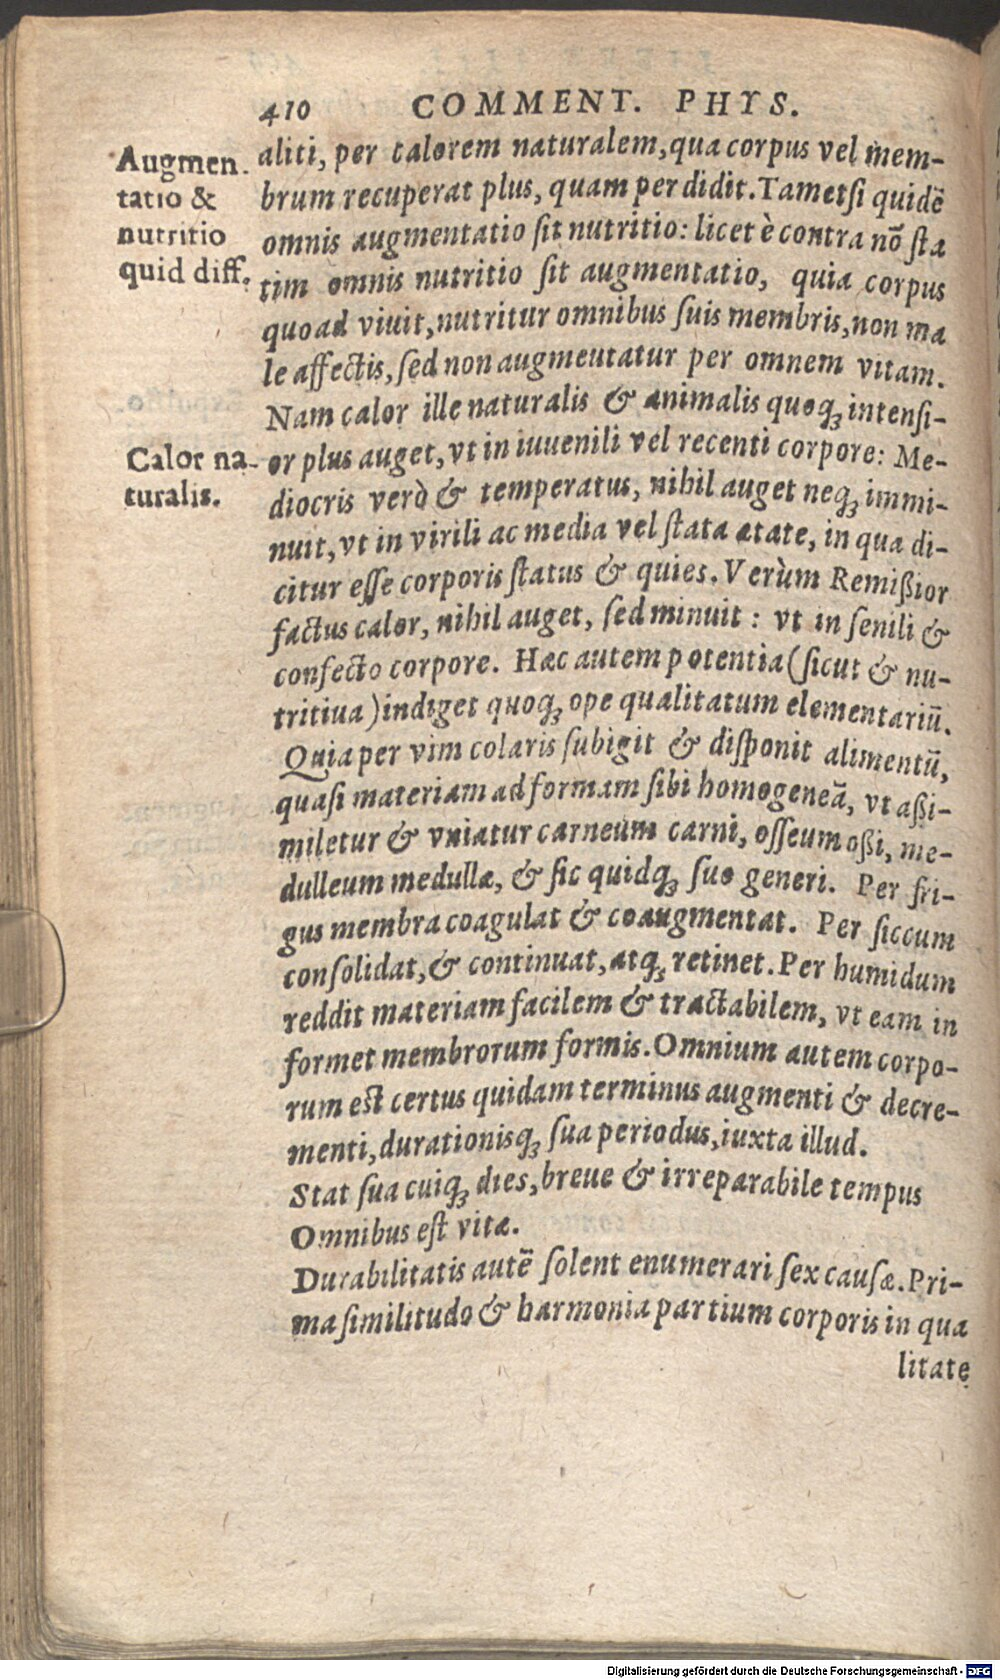 410 COMMENT. PHYS.
Augmen-
tatio &
nutritio
quid diff.
aliti, per calorem naturalem, qua corpus vel mem-
brum recuperat plus, quam perdidit. Tametſi quidē
omnis augmentatio ſit nutritio: licet è contra nō ſta
tim omnis nutritio ſit augmentatio, quia corpus
quoad viuit, nutritur omnibus ſuis membris, non ma
le affectis, ſed non augmeutatur per omnem vitam.
Nam calor ille naturalis & animalis quoq; intenſi-
Calor na-
turalis.
or plus auget, vt in iuuenili vel recenti corpore: Me-
diocris verò & temperatus, nihil auget neq; immi-
nuit, vt in virili ac media vel ſtata ætate, in qua di-
citur eſſe corporis ſtatus & quies. Verùm Remiſsior
factus calor, nihil auget, ſed minuit: vt in ſenili &
confecto corpore. Hæc autem potentia (ſicut & nu-
tritiua) indiget quoq; ope qualitatum elementariū.
Quia per vim colaris ſubigit & diſponit alimentū,
quaſi materiam ad formam ſibi homogeneā, vt aſsi-
miletur & vniatur carneum carni, oſſeum oſsi, me-
dulleum medullæ, & ſic quidq; ſuo generi. Per fri-
gus membra coagulat & coaugmentat. Per ſiccum
conſolidat, & continuat, atq; retinet. Per humidum
reddit materiam facilem & tractabilem, vt eam in
formet membrorum formis. Omnium autem corpo-
rum eſt certus quidam terminus augmenti & decre-
menti, durationisq; ſua periodus, iuxta illud.
Stat ſua cuiq; dies, breue & irreparabile tempus
Omnibus eſt vitæ.
Durabilitatis autē ſolent enumerari ſex cauſæ. Pri-
ma ſimilitudo & harmonia partium corporis in qua
litate
Digitalisierung gefördert durch die Deutsche Forschungsgemeinschaft - DFG